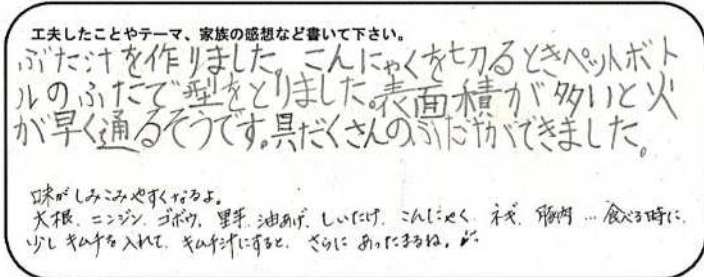 工夫したことやテーマ、家族の感想など書いて下さい。
ぶた汁を作りました。こんにゃくを切るときペットボト
ルのふたで型をとりました。表面積が多いと火
が早く通るそうです。具だくさんのぶた汁ができました。
味がしみこみやすくなるよ。
大根、ニンジン、ゴボウ、里芋、油あげ、しいたけ、こんにゃく、ネギ、豚肉…食べる時に、
少しキムチを入れて、キムチ汁にすると、さらにあったまるね。